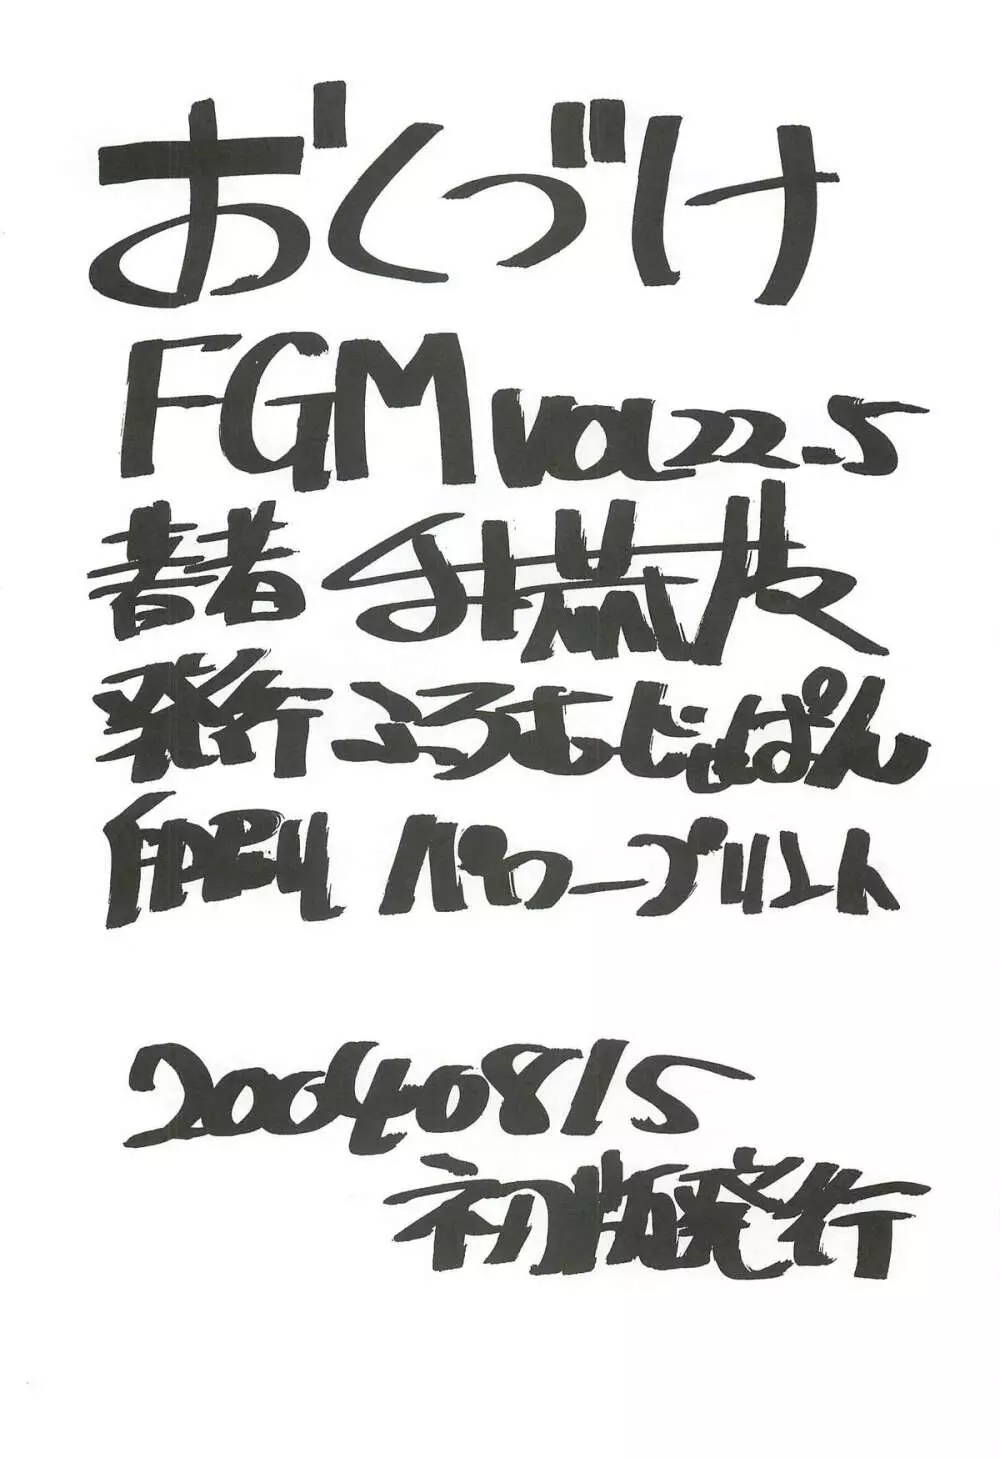 おくづけ
FGM VOL22-5
著者
発行 ふろむじゃぱん
印刷 パワープリント
20040815
初版発行